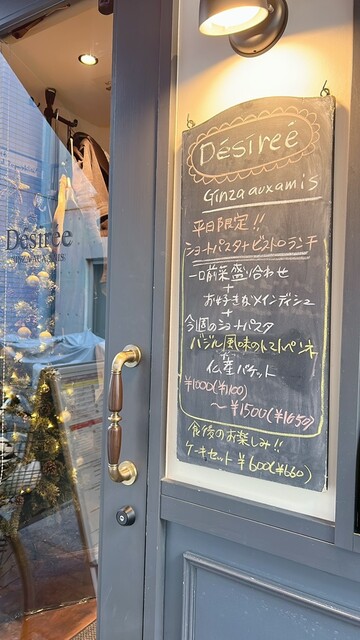 Désirée
GINZA AUX AMIS
Désireé
Ginza aux amis
平日限定!!
ショートパスタ+ビストロランチ
一口前菜盛り合わせ
+
お好きなメインディシュ
+
今週のショートパスタ
バジル風味のトマトペンネ
+
仏産バケット
¥1000(¥1100)
～¥1500(¥1650)
食後のお楽しみ!!
ケーキセット ¥600(¥660)